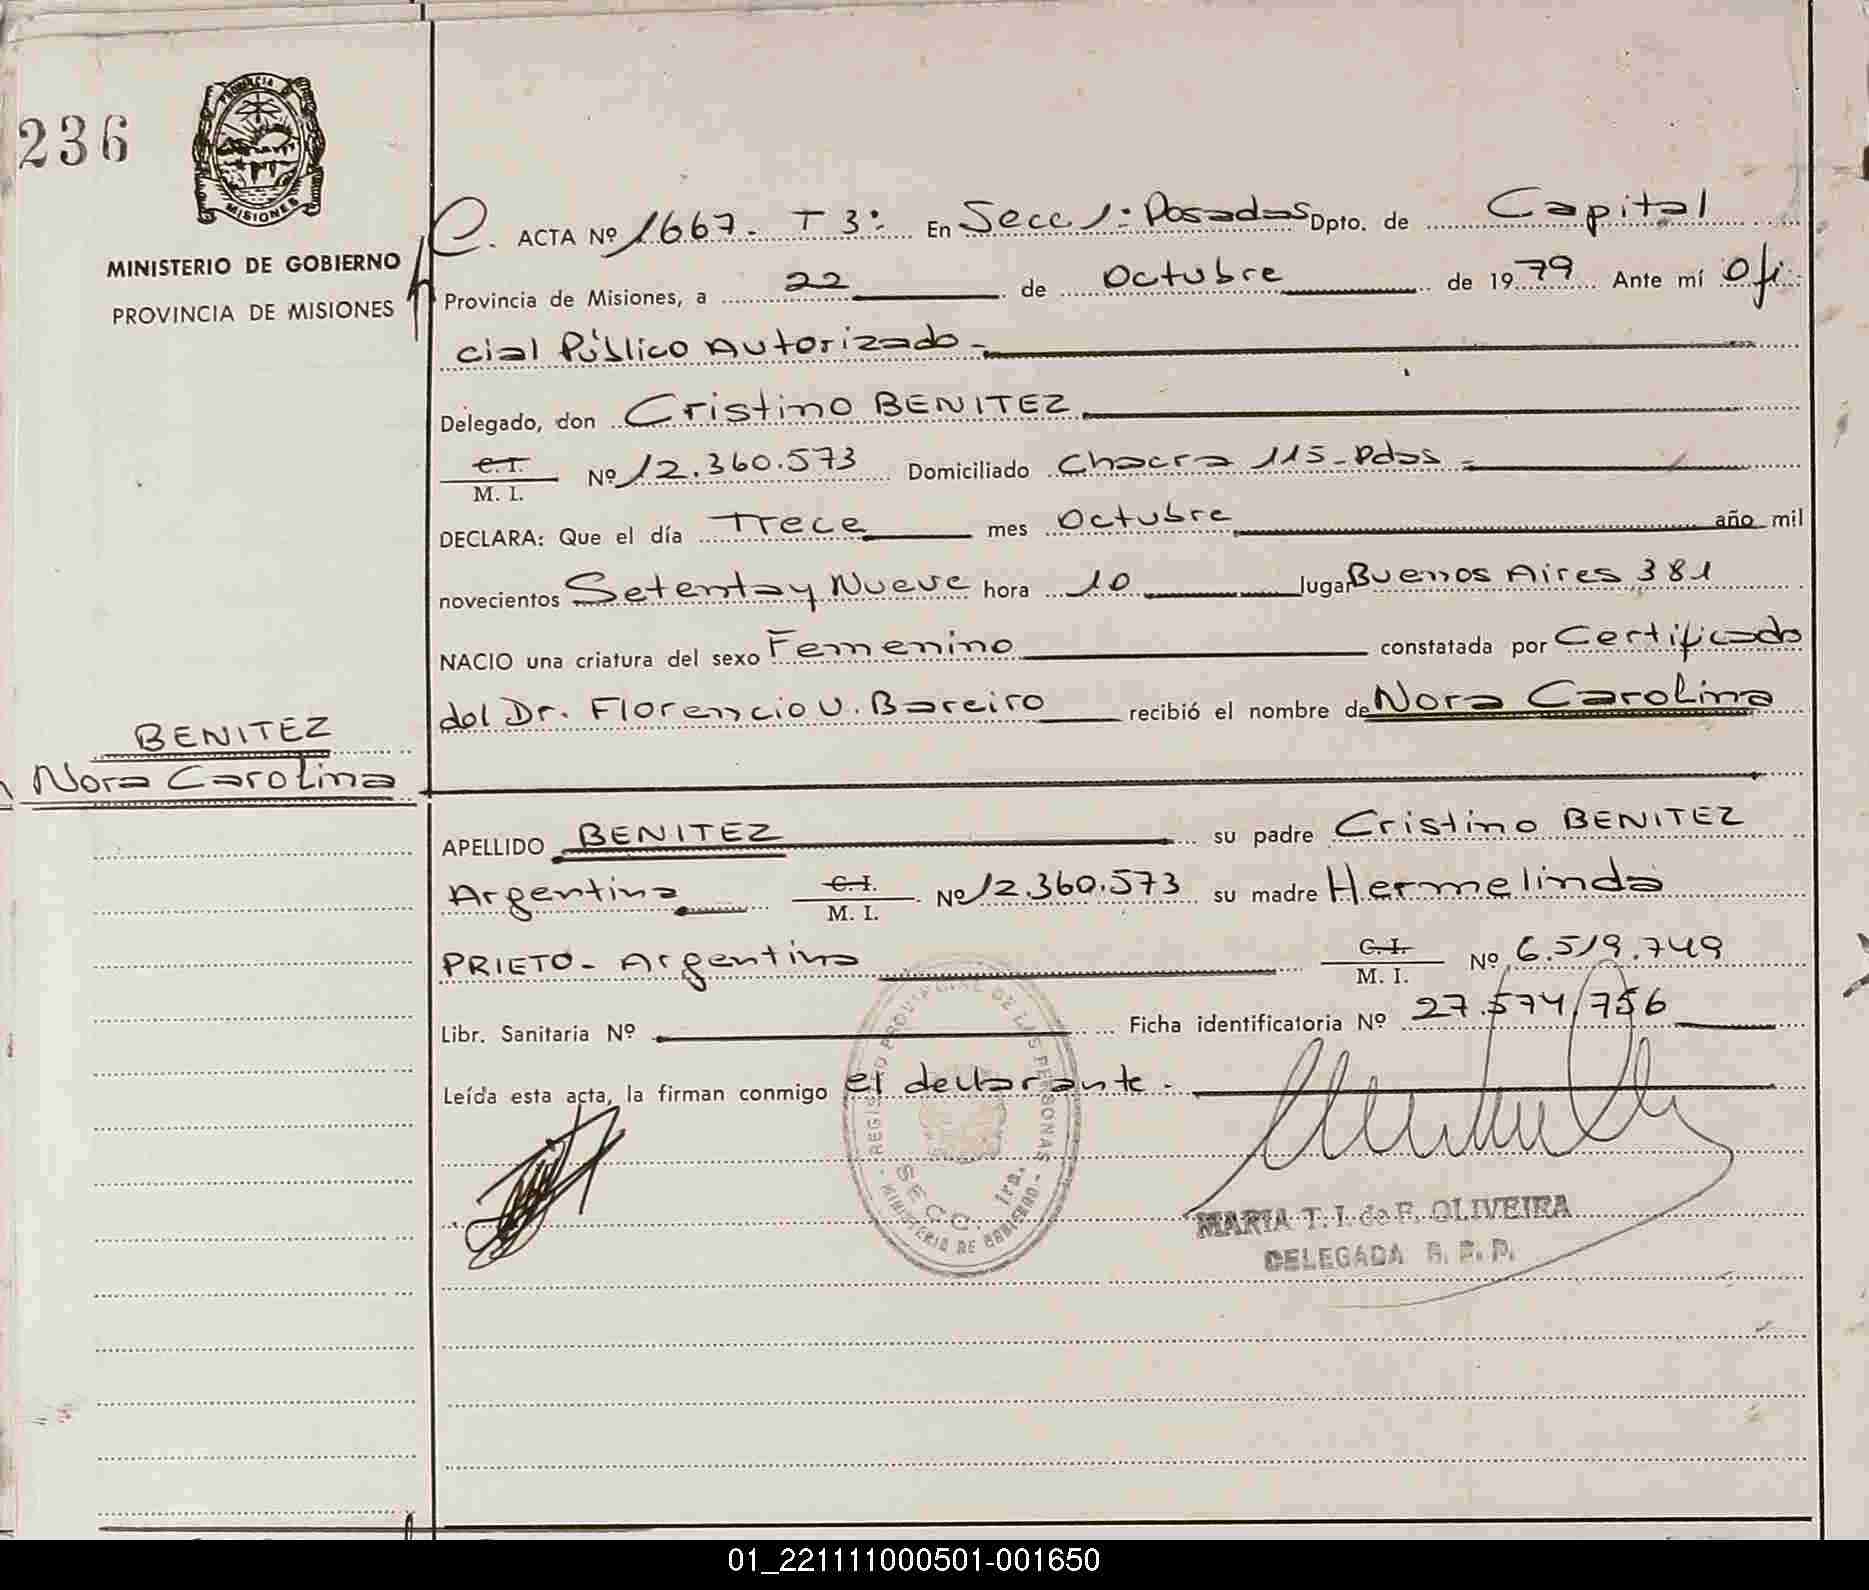 236
PROVINCIA DE
MISIONES
MINISTERIO DE GOBIERNO
PROVINCIA DE MISIONES
BENITEZ
Nora Carolina
ACTA Nº 1667. T 3: En Secc 1: Posadas Dpto. de Capital
Provincia de Misiones, a 22 de Octubre de 1979 Ante mí Ofi
cial Público Autorizado -
Delegado, don Cristino BENITEZ
C.I.
M. I. Nº 12.360.573 Domiciliado Chacra 115-Pdas -
DECLARA: Que el día Trece mes Octubre año mil
novecientos Setenta y Nueve hora 10 lugar Buenos Aires 381
NACIO una criatura del sexo Femenino constatada por Certificado
del Dr. Florencio U. Bareiro recibió el nombre de Nora Carolina
APELLIDO BENITEZ su padre Cristino BENITEZ
Argentina C.I.
M. I. Nº 12.360.573 su madre Hermelinda
PRIETO - Argentina C.I.
M. I. Nº 6.519.749
Libr. Sanitaria Nº Ficha identificatoria Nº 27.574.756
Leída esta acta, la firman conmigo el declarante.
REGISTRO PROVINCIAL DE LAS PERSONAS
SECC. 1ra.
MINISTERIO DE GOBIERNO
MARIA T. I. de F. OLIVEIRA
DELEGADA R. P. P.
01_221111000501-001650